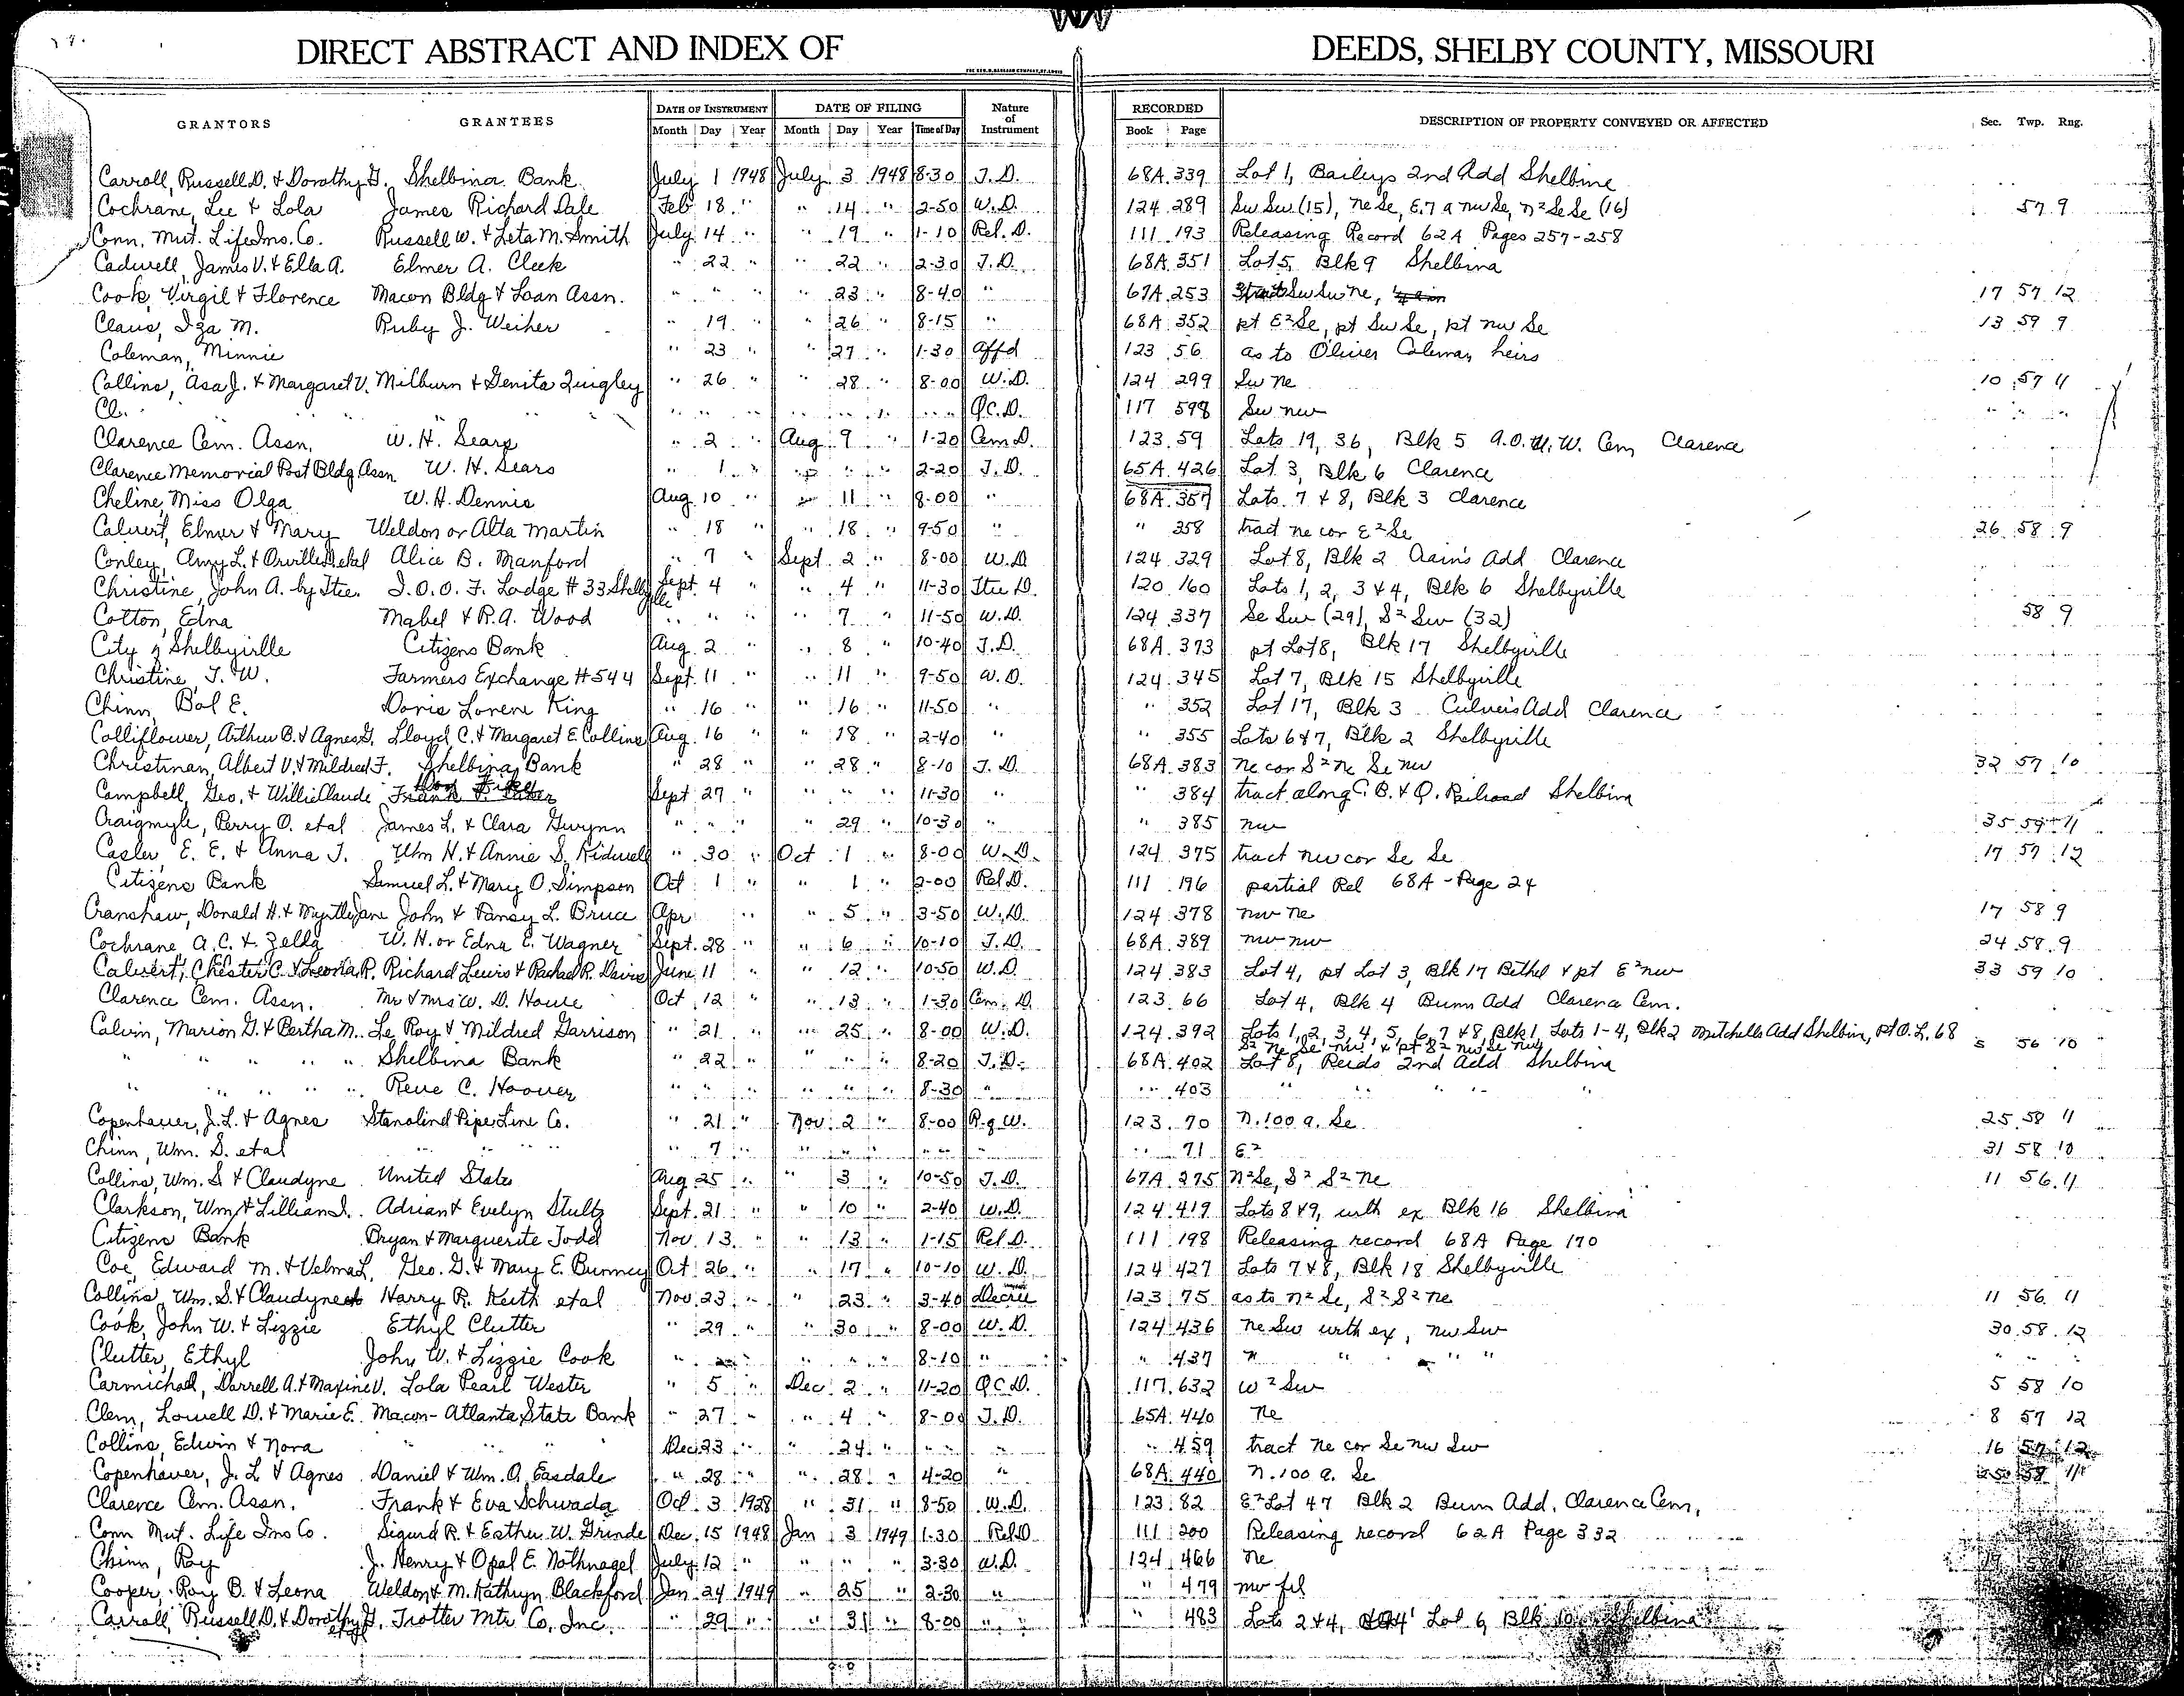 DIRECT ABSTRACT AND INDEX OF DEEDS, SHELBY COUNTY, MISSOURI
GRANTORS GRANTEES DATE OF INSTRUMENT DATE OF FILING Nature of Instrument RECORDED DESCRIPTION OF PROPERTY CONVEYED OR AFFECTED Sec. Twp. Rng.
Month Day Year Month Day Year Time of Day Book Page
Carroll, Russell D. & Dorothy G. Shelbina Bank July 1 1948 July 3 1948 8-30 T.D. 68A 339 Lot 1, Baileys 2nd Add Shelbina
Cochrane, Lee & Lola James Richard Dale Feb 18 " " 14 " 2-50 W.D. 124 289 Sw Sw (15), Ne Se, E. 7 a nw Se, N² Se Se (16) 57 9
Conn. Mut. Life Ins. Co. Russell W. & Leta M. Smith July 14 " " 19 " 1-10 Rel. D. 111 193 Releasing Record 62A Pages 257-258
Cadwell, James V. & Ella A. Elmer A. Cleek " 22 " " 22 " 2-30 T.D. 68A 351 Lot 5, Blk 9 Shelbina
Cook, Virgil & Florence Macon Bldg & Loan Assn. " " " " 23 " 8-40 " 67A 253 Sw Sw Ne, 17 57 12
Claus, Iza M. Ruby J. Weiher " 19 " " 26 " 8-15 " 68A 352 pt E² Se, pt Sw Se, pt nw Se 13 59 9
Coleman, Minnie " 23 " " 27 " 1-30 Affd 123 56 as to Oliver Coleman heirs
Collins, Asa J. & Margaret V. Milburn & Genita Quigley " 26 " " 28 " 8-00 W.D. 124 299 Sw ne 10 57 11
Cl. " " " " " " " " " " Q.C.D. 117 598 Sw nw " " "
Clarence Cem. Assn. W. H. Sears " 2 " Aug 9 " 1-20 Cem D. 123 59 Lots 19, 36, Blk 5 A.O.U.W. Cem Clarence
Clarence Memorial Post Bldg Assn W. H. Sears " 1 " " " " 2-20 T.D. 65A 426 Lot 3, Blk 6 Clarence
Cheline, Miss Olga W. H. Dennis Aug 10 " " 11 " 8-00 " 68A 357 Lots 7 & 8, Blk 3 Clarence
Calvert, Elmer & Mary Weldon or Alta Martin " 18 " " 18 " 9-50 " " 358 tract ne cor E² Se 26 58 9
Conley, Amy L. & Orville etal Alice B. Manford " 7 " Sept 2 " 8-00 W.D. 124 329 Lot 8, Blk 2 Add Clarence
Christine, John A. by Ttee. I.O.O.F. Lodge #33 Shelbyville Sept. 4 " " 4 " 11-30 Ttee D. 120 160 Lots 1, 2, 3 & 4, Blk 6 Shelbyville
Cotton, Edna Mabel & R.A. Wood " " " " 7 " 11-50 W.D. 124 337 Se Sw (29), S² Sw (32) 58 9
City of Shelbyville Citizens Bank Aug. 2 " " 8 " 10-40 T.D. 68A 373 pt Lot 8, Blk 17 Shelbyville
Christine, T. W. Farmers Exchange #544 Sept. 11 " " 11 " 9-50 W.D. 124 345 Lot 7, Blk 15 Shelbyville
Chinn, Bal E. Doris Lorene King " 16 " " 16 " 11-50 " " 352 Lot 17, Blk 3 Culvers Add Clarence
Colliflower, Arthur B. & Agnes G. Lloyd C. & Margaret E. Collins Aug. 16 " " 18 " 2-40 " " 355 Lots 6 & 7, Blk 2 Shelbyville
Christman, Albert V. & Mildred F. Shelbina Bank " 28 " " 28 " 8-10 T.D. 68A 383 Ne cor S² ne Se nw 32 57 10
Campbell, Geo. & Willie Claude Sept 27 " " " " 11-30 " " 384 tract along C. B. & Q. Railroad Shelbina
Craigmyle, Perry O. etal James L. & Clara Gwynn " " " " 29 " 10-30 " " 385 nw 35 59 11
Casler, E. E. & Anna J. Wm H. & Annie S. Kidwell " 30 " Oct 1 " 8-00 W.D. 124 375 tract nw cor Se Se 17 57 12
Citizens Bank Samuel L. & Mary O. Simpson Oct 1 " " 1 " 2-00 Rel D. 111 196 partial Rel 68A - Page 24
Cranshaw, Donald H. & Myrtle Jane John & Pansy L. Bruce Apr " " 5 " 3-50 W.D. 124 378 nw ne 17 58 9
Cochrane A. C. & Zella W. H. or Edna E. Wagner Sept. 28 " " 6 " 10-10 T.D. 68A 389 nw nw 24 58 9
Calvert, Chester C. & Leona R. Richard Lewis & Rachael R. Davis June 11 " " 12 " 10-50 W.D. 124 383 Lot 4, pt Lot 3, Blk 17 Bethel & pt E² nw 33 59 10
Clarence Cem. Assn. Mr & Mrs W. D. Howe Oct 12 " " 13 " 1-30 Cem. D. 123 66 Lot 4, Blk 4 Bunn Add Clarence Cem.
Calvin, Marion G. & Bertha M. Le Roy & Mildred Garrison " 21 " " 25 " 8-00 W.D. 124 392 Lots 1, 2, 3, 4, 5, 6, 7 & 8, Blk 1, Lots 1-4, Blk 2 Mitchells Add Shelbina, pt O.L. 68
S² ne Se nw, & pt S² nw Se nw 5 56 10
" " " " " Shelbina Bank " 22 " " " " 8-20 T.D. 68A 402 Lot 8, Reids 2nd Add Shelbina
" " " " " Reue C. Hoover " " " " " " 8-30 " " 403 " " " " "
Copenhaver, J. L. & Agnes Stanolind Pipe Line Co. " 21 " Nov 2 " 8-00 R. of W. 123 70 N. 100 a. Se 25 58 11
Chinn, Wm. S. etal " " " " 7 " " " " " " " 71 E² 31 58 10
Collins, Wm. S & Claudyne United States Aug 25 " " 3 " 10-50 T.D. 67A 275 N² Se, S² S² Ne 11 56 11
Clarkson, Wm & Lillian I. Adrian & Evelyn Stultz Sept. 21 " " 10 " 2-40 W.D. 124 419 Lots 8 & 9, with ex Blk 16 Shelbina
Citizens Bank Bryan & Marguerite Todd Nov. 13 " " 13 " 1-15 Rel D. 111 198 Releasing record 68A Page 170
Coe, Edward M. & Velma L. Geo. G. & Mary E. Bunney Oct 26 " " 17 " 10-10 W.D. 124 427 Lots 7 & 8, Blk 18 Shelbyville
Collins, Wm. S. & Claudyne Harry R. Keith etal Nov 23 " " 23 " 3-40 Decree 123 75 as to N² Se, S² S² Ne 11 56 11
Cook, John W. & Lizzie Ethyl Clutter " 29 " " 30 " 8-00 W.D. 124 436 Ne Sw with ex, nw Sw 30 58 12
Clutter, Ethyl John W. & Lizzie Cook " " " " " " 8-10 " " 437 " " " " " " "
Carmichael, Darrell A. & Maxine V. Lola Pearl Wester " 5 " Dec 2 " 11-20 Q.C.D. 117 632 W² Sw 5 58 10
Clem, Lowell D. & Marie E. Macon-Atlanta State Bank " 27 " " 4 " 8-00 T.D. 65A 440 Ne 8 57 12
Collins, Edwin & Nora " " " Dec 23 " " 24 " " " " 459 tract ne cor Se nw Sw 16 57 12
Copenhaver, J. L. & Agnes Daniel & Wm. A. Easdale " 28 " " 28 " 4-20 " 68A 440 N. 100 a. Se 25 58 11
Clarence Cem. Assn. Frank & Eva Schwada Oct. 3 1928 " 31 " 8-50 W.D. 123 82 E² Lot 47 Blk 2 Bunn Add. Clarence Cem.
Conn Mut. Life Ins Co. Sigurd R. & Esther W. Grinde Dec. 15 1948 Jan 3 1949 1-30 Rel D 111 200 Releasing record 62A Page 332
Chinn, Roy J. Henry & Opal E. Nothnagel July 12 " " " " 3-30 W.D. 124 466 Ne
Cooper, Roy B. & Leona Weldon & M. Kathryn Blackford Jan 24 1949 " 25 " 2-30 " " 479 nw frl
Carroll, Russell D. & Dorothy G. etal Trotter Mtr Co, Inc. " 29 " " 31 " 8-00 " " 483 Lots 2 & 4, Lot 6, Blk 10 Shelbina